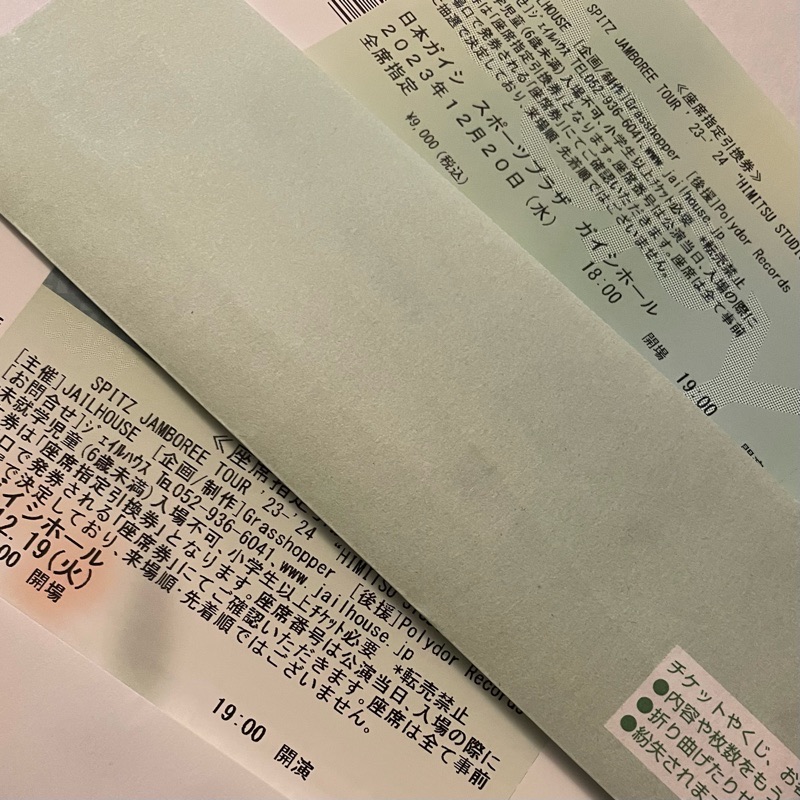 《座席指定引換券》
SPITZ JAMBOREE TOUR '23-'24 "HIMITSU STUDIO
JAILHOUSE [企画/制作]Grasshopper [後援]Polydor Records
TEL052-936-6041 www.jailhouse.jp
(6歳未満)入場不可 小学生以上ﾁｹｯﾄ必要 *転売禁止
「座席指定引換券」となります。座席番号は公演当日、入場の際に
口で発券される「座席券」にてご確認いただきます。座席は全て事前
に抽選で決定しており、来場順・先着順ではございません。
日本ガイシ スポーツプラザ ガイシホール
2023年12月20日(水) 18:00 開場 19:00
全席指定
¥9,000(税込)
《座席指定
SPITZ JAMBOREE TOUR '23-'24 "HIMITSU
[主催]JAILHOUSE [企画/制作]Grasshopper [後援]Polydor Records
[お問合せ]ｼﾞｪｲﾙﾊｳｽ TEL052-936-6041,www.jailhouse.jp
未就学児童(6歳未満)入場不可 小学生以上ﾁｹｯﾄ必要 *転売禁止
券は「座席指定引換券」となります。座席番号は公演当日、入場の際に
口で発券される「座席券」にてご確認いただきます。座席は全て事前
で決定しており、来場順・先着順ではございません。
イシホール
12.19(火)
:00 開場
19:00 開演
チケットやくじ、お
●内容や枚数をもう
●折り曲げたりせ
●紛失されま